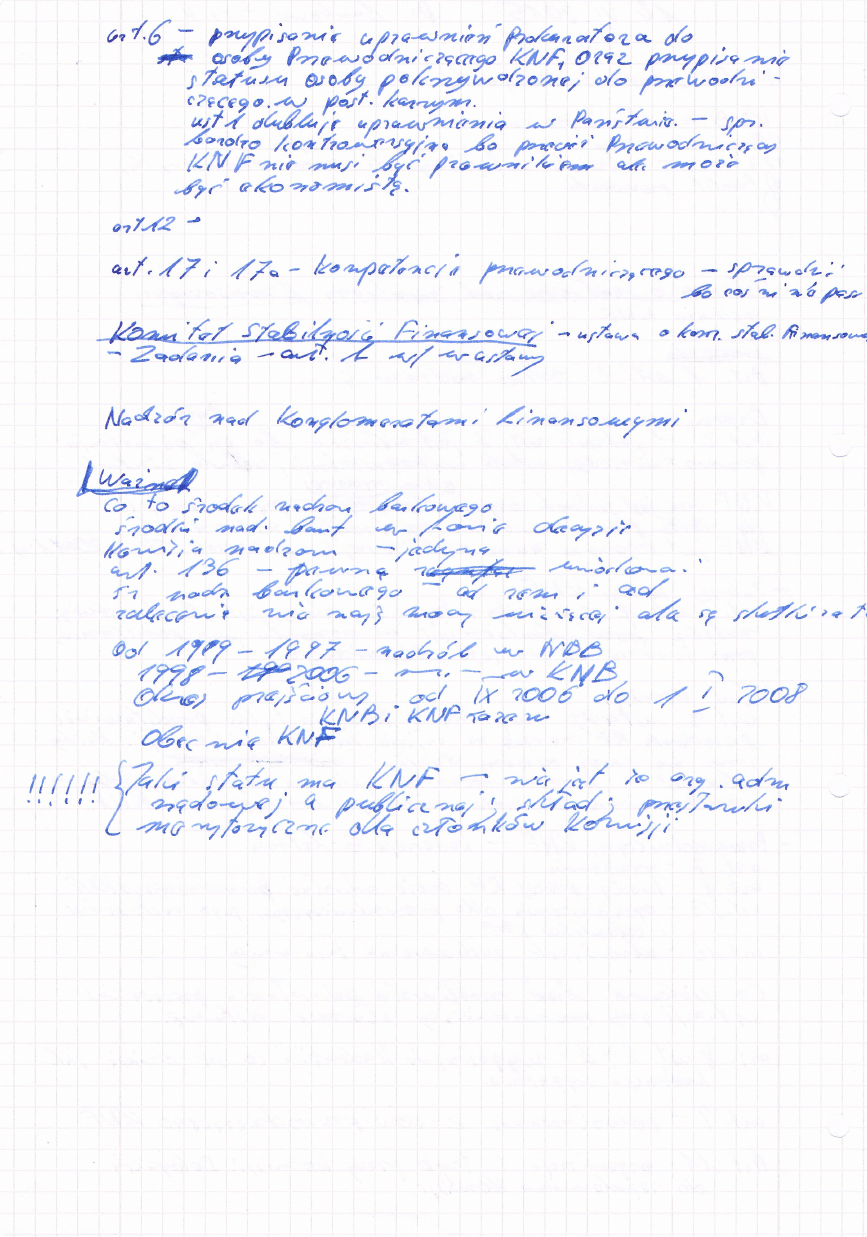 art. 6 – przypisanie uprawnień Prokuratora do
osoby Przewodniczącego KNF, oraz przypisanie
statusu osoby pokrzywdzonej do przewodni-
czącego w post. karnym.
ust 1 dubluje uprawnienia w Państwie. – spr.
bardzo kontrowersyjna bo przecież Przewodniczący
KNF nie musi być prawnikiem ale może
być ekonomistą.
art 12 –
art. 17 i 17a – kompetencje przewodniczącego – sprawdzić
bo coś mi nie pasu
Komitet Stabilności Finansowej – ustawa o kom. stab. Finansowe
– Zadania – art. 1 w/w ustawy
Nadzór nad Konglomeratami finansowymi
Ważne
Co to środek nadzoru bankowego
środki nad. bank w formie decyzji
Komisja nadzoru – jedyna
art. 136 – pewną
śr nadz bankowego – od zera i od
zalecenie nie mają mocy wiążącej ale są
Od 1989 – 1997 – nadzór w NBP
1998 – 2006 – –––.– w KNB
Okres przejściowy od IX 2006 do 1 I 2008
KNB i KNF razem
Obecnie KNF
!!!!!! Jaki status ma KNF – nie jest to org. adm
rządowej a publicznej; skład; przesłanki
merytoryczne dla członków Komisji